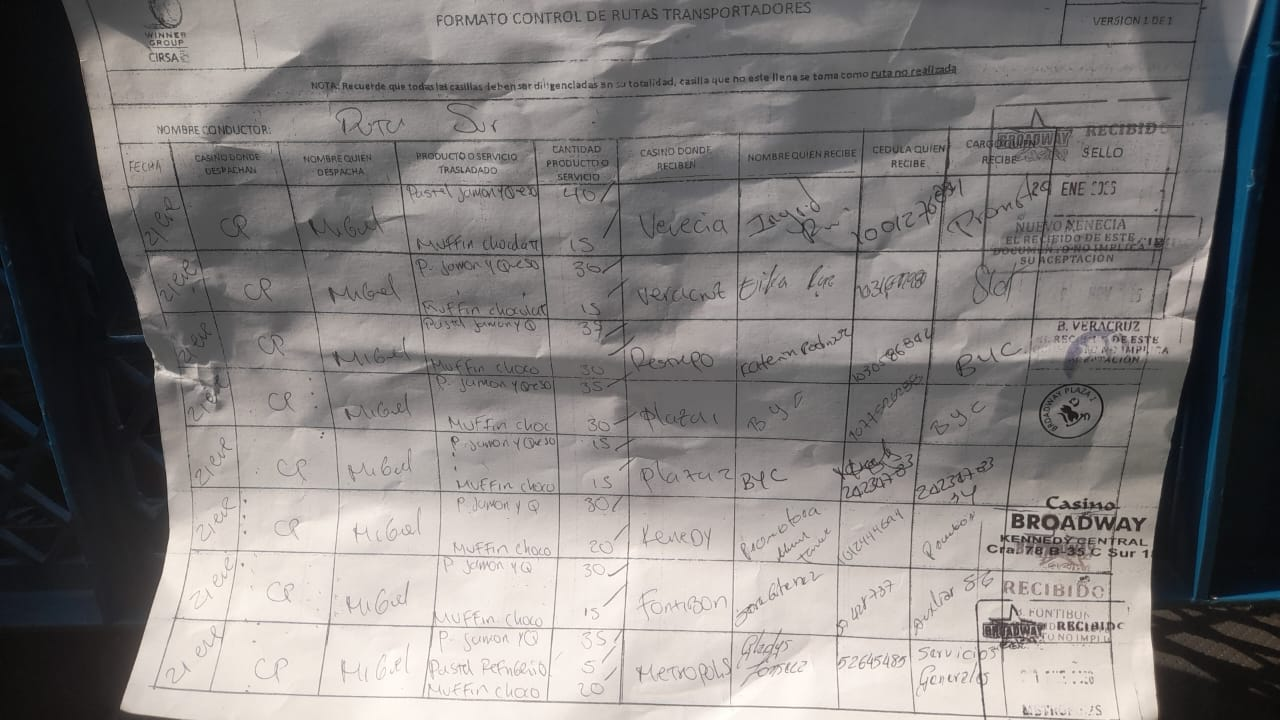 WINNER GROUP
CIRSA
FORMATO CONTROL DE RUTAS TRANSPORTADORES
VERSION 1 DE 1
NOTA: Recuerde que todas las casillas deben ser diligenciadas en su totalidad, casilla que no este llena se toma como ruta no realizada
NOMBRE CONDUCTOR: Ruta Sur
FECHA CASINO DONDE DESPACHAN NOMBRE QUIEN DESPACHA PRODUCTO O SERVICIO TRASLADADO CANTIDAD PRODUCTO O SERVICIO CASINO DONDE RECIBEN NOMBRE QUIEN RECIBE CEDULA QUIEN RECIBE CARGO QUIEN RECIBE SELLO
BROADWAY RECIBIDO
ENE 2025
NUEVO VENECIA
EL RECIBIDO DE ESTE
DOCUMENTO NO IMPLICA
SU ACEPTACIÓN
21 ene CP Miguel Pastel jamon y Queso 40 Venecia Ingrid
Muffin chocolat 15
21 ene CP Miguel P. jamon y Queso 30 Erika Slot
Muffin chocolat 15
21 ene CP Miguel Pastel jamon y Q 37 Restrepo ByC
Muffin choco 30
B. VERACRUZ
21 ene CP Miguel P. jamon y Queso 35 Plaza 1 ByC ByC
Muffin choc 30
BROADWAY PLAZA 1
21 ene CP Miguel P. jamon y Queso 15 Plaza 2 BYC
Muffin choco 15
21 ene CP Miguel P. jamon y Q 30 Kenedy Promotora
Muffin choco 20
Casino
BROADWAY
KENNEDY CENTRAL
Cra. 78 B-35 C Sur 1
21 ene CP Miguel P jamon y Q 30 Fontibon Auxiliar SG
Muffin choco 15
RECIBIDO
B. FONTIBON
BROADWAY RECIBIDO
21 ene CP Miguel P. jamon y Q 35 Metropolis Gladys Fonseca 52645485 Servicios Generales
Pastel Refrigerio 5
Muffin choco 20
METROPOLIS